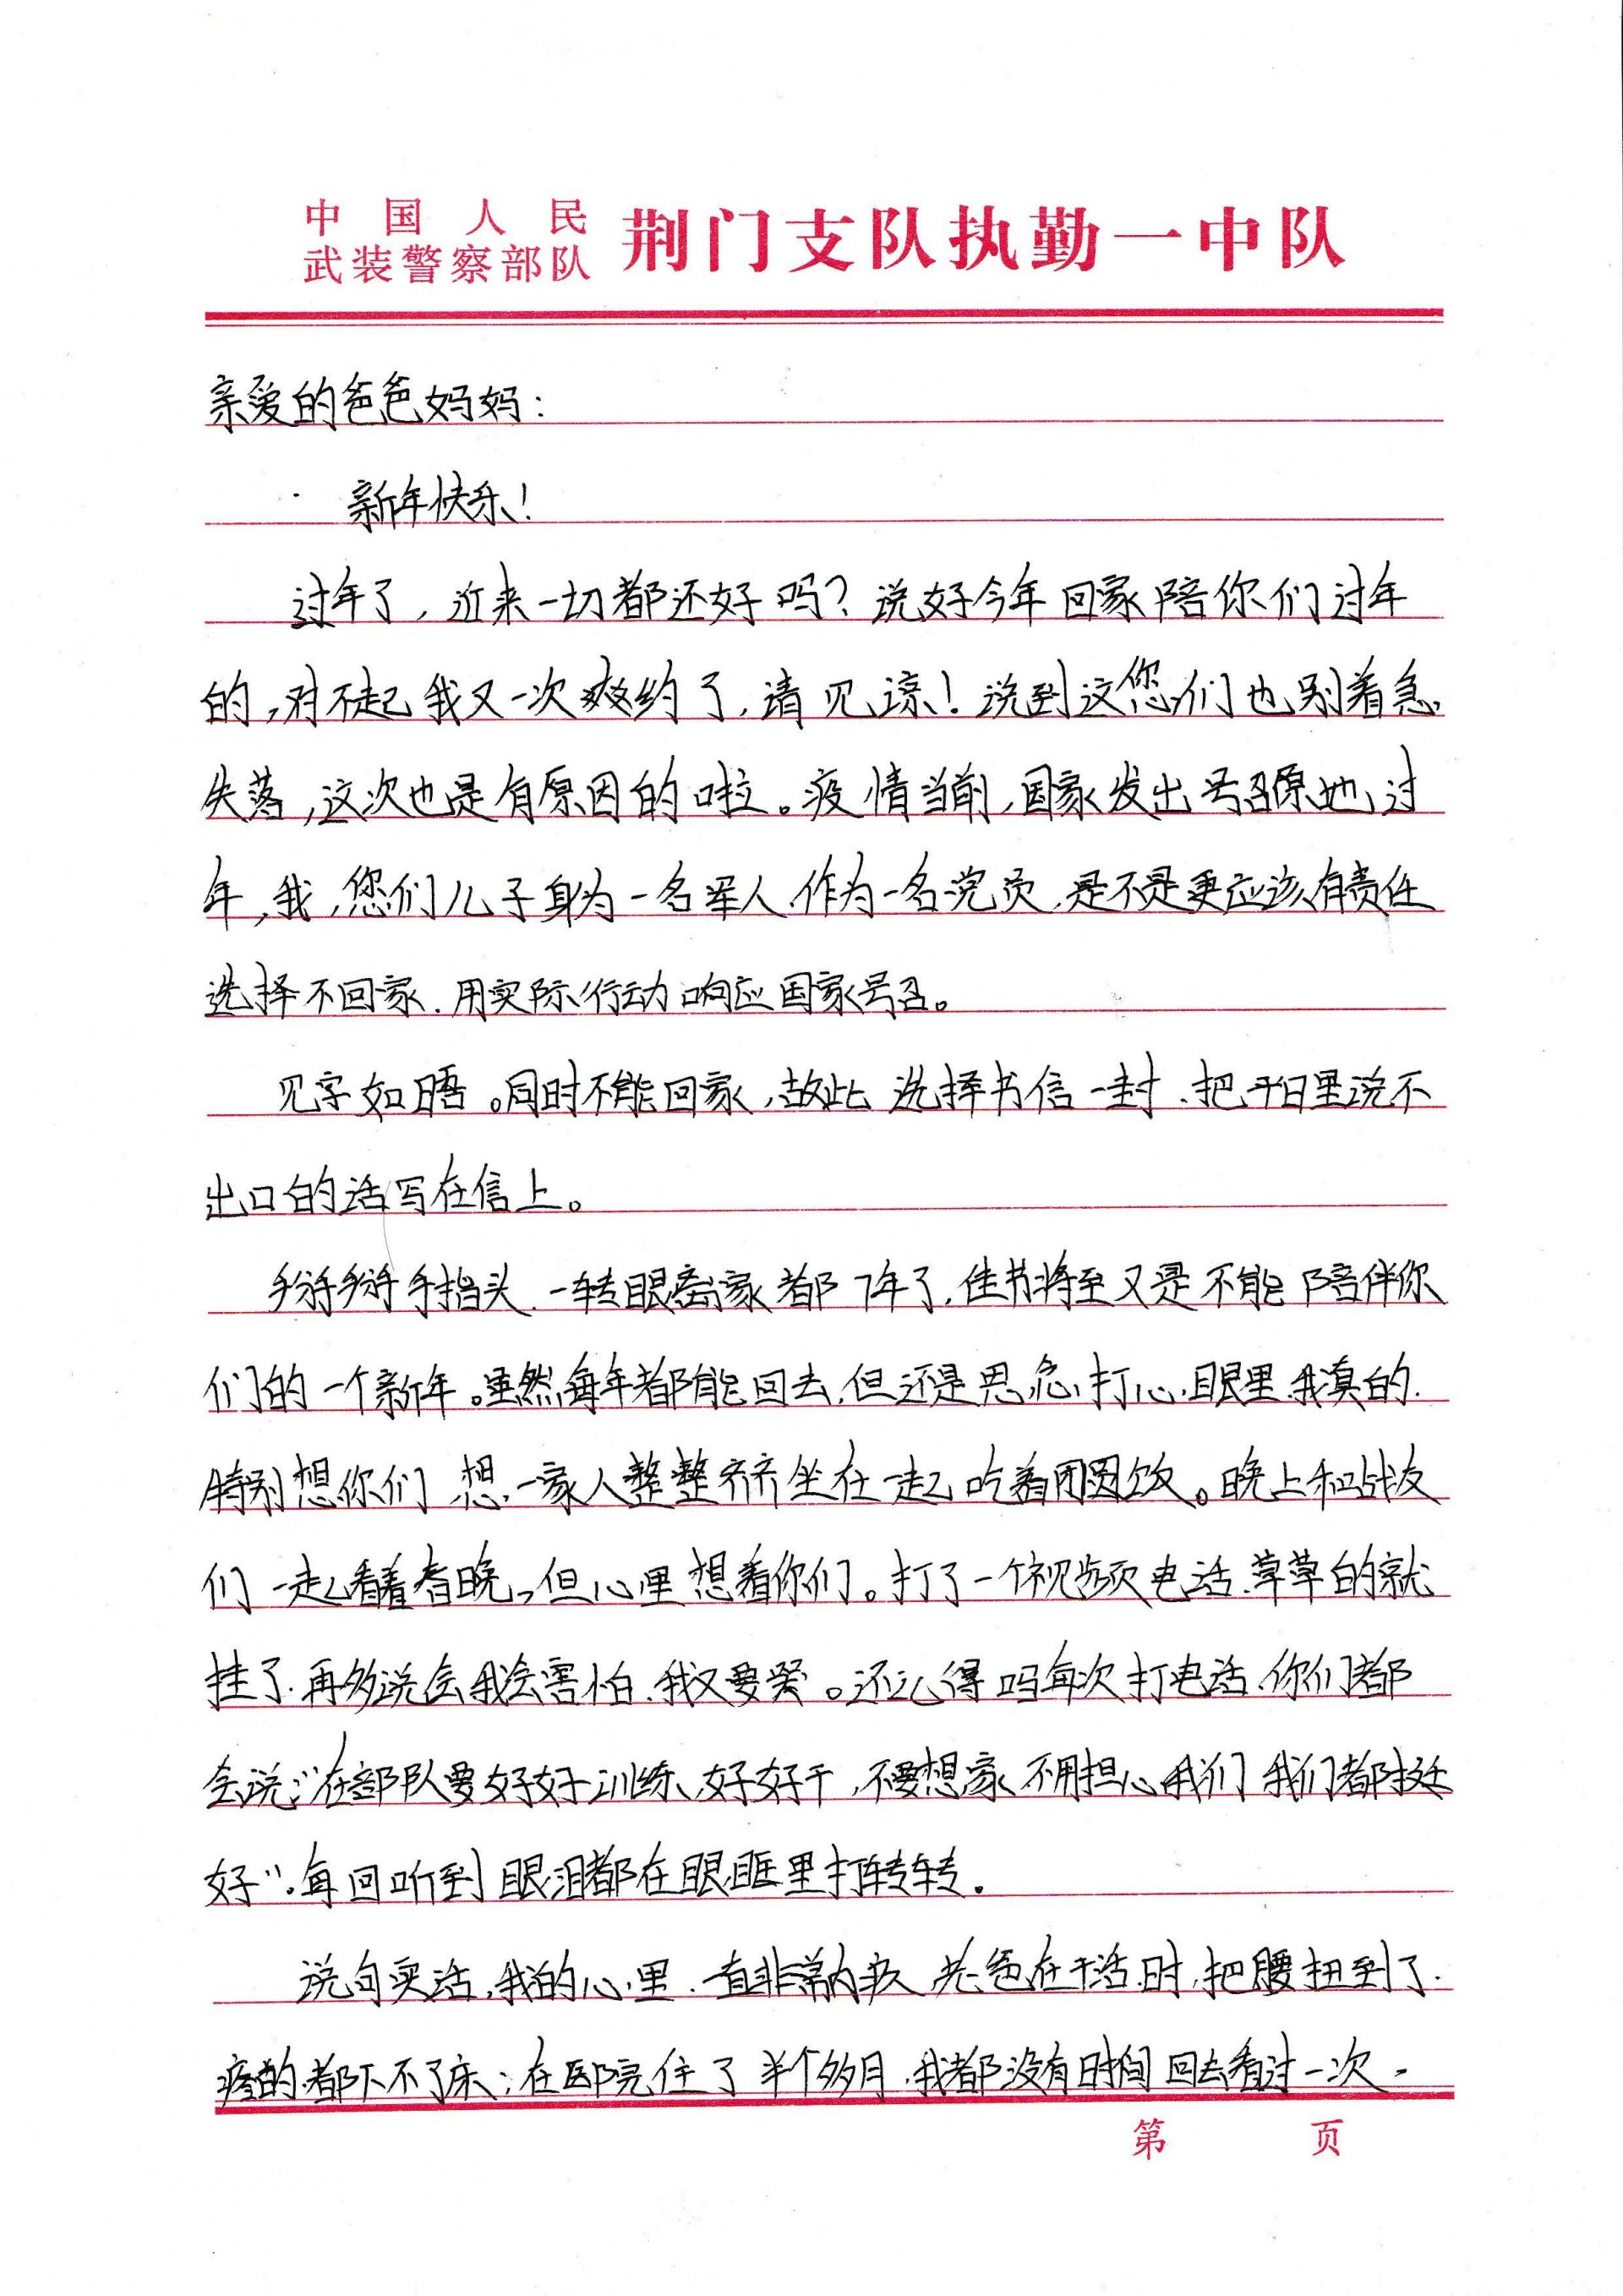 中国人民
武装警察部队 荆门支队执勤一中队
亲爱的爸爸妈妈：
新年快乐！
过年了，近来一切都还好吗？说好今年回家陪你们过年
的，对不起我又一次爽约了，请见谅！说到这您们也别着急，
失落，这次也是有原因的啦。疫情当前，国家发出号召原地过
年，我，您们儿子身为一名军人，作为一名党员，是不是更应该有责任
选择不回家，用实际行动响应国家号召。
见字如晤。同时不能回家，故此选择书信一封，把平日里说不
出口的话写在信上。
掰掰手指头，一转眼离家都7年了，佳节将至又是不能陪伴你
们的一个新年。虽然每年都能回去，但还是思念，打心眼里我真的，
特别想你们，想一家人整整齐齐坐在一起吃着团圆饭。晚上和战友
们一起看着春晚，但心里想着你们。打了一个视频电话，草草的就
挂了，再多说会我会害怕，我又要哭。还记得吗每次打电话，你们都
会说：“在部队要好好训练，好好干，不要想家，不用担心我们，我们都挺
好”，每回听到眼泪都在眼眶里打转转。
说句实话，我的心里，一直非常内疚，老爸在干活时，把腰扭到了，
疼的都下不了床；在医院住了半个多月，我都没有时间回去看过一次，
第 页